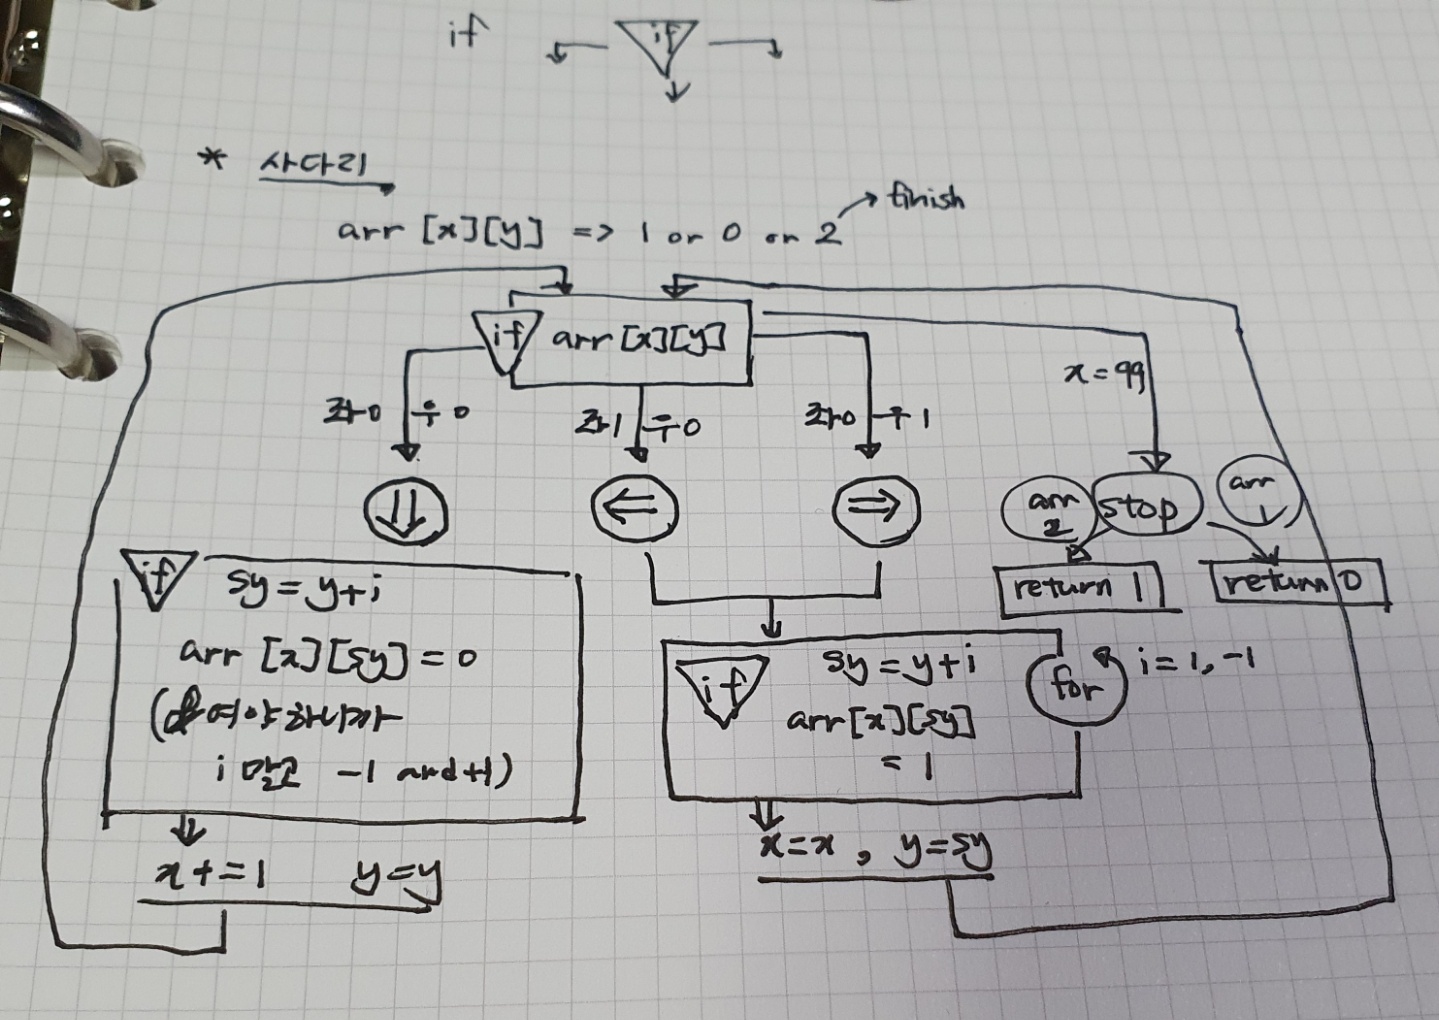 if if
* 사다리
arr [x][y] => 1 or 0 or 2 → finish
if arr [x][y]
좌0 우0 좌1 우0 좌0 우1 x=99
⇓ ⇐ ⇒ arr 2 stop arr 1
return 1 return 0
if sy = y+i
arr [x][sy] = 0
하나가
i 말고 -1 and +1)
x+=1 y=y
if sy = y+i for i = 1, -1
arr[x][sy]
= 1
x=x, y=sy